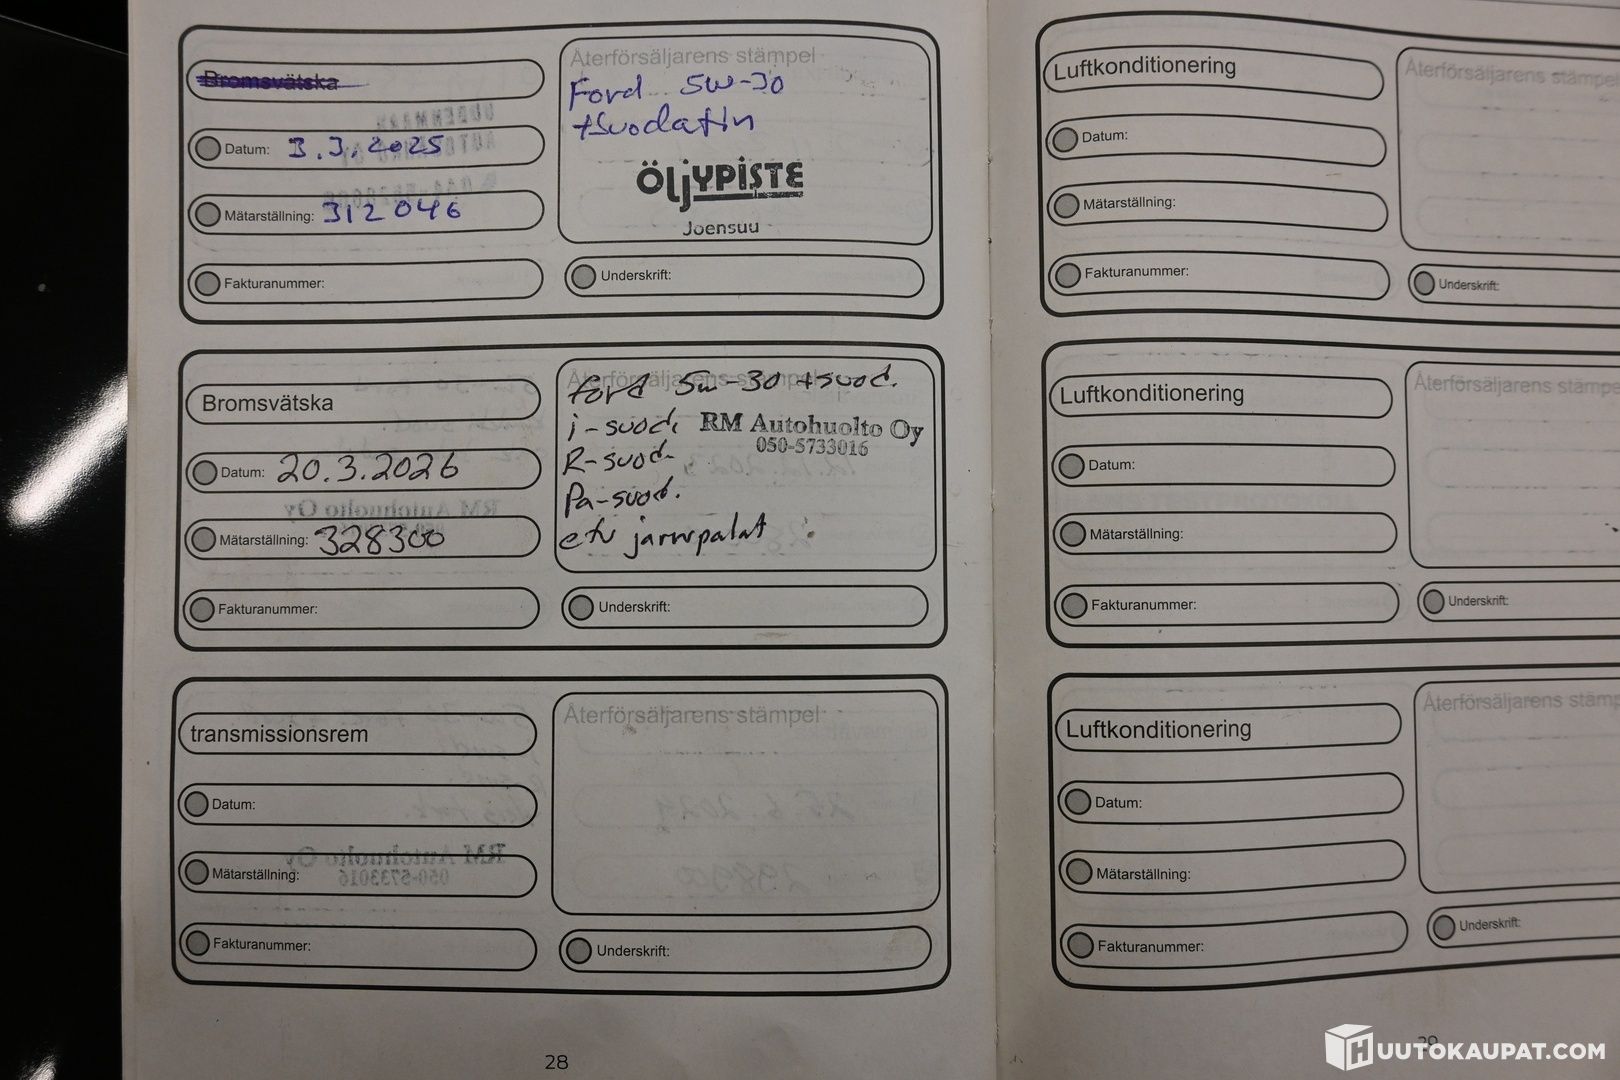 Bromsvätska
Datum: 3.3.2025
Mätarställning: 312046
Fakturanummer:
Återförsäljarens stämpel
Ford 5W-30
+suodatin
ÖLJYPISTE
Joensuu
Underskrift:
Bromsvätska
Datum: 20.3.2026
Mätarställning: 328300
Fakturanummer:
Återförsäljarens stämpel
Ford 5w-30 +suod.
i-suod.
RM Autohuolto Oy
050-5733016
R-suod.
Pa-suod.
etu jarrupalat
Underskrift:
transmissionsrem
Datum:
Mätarställning:
Fakturanummer:
Återförsäljarens stämpel
Underskrift:
28
Luftkonditionering
Datum:
Mätarställning:
Fakturanummer:
Återförsäljarens stämpel
Underskrift:
Luftkonditionering
Datum:
Mätarställning:
Fakturanummer:
Återförsäljarens stämpe
Underskrift:
Luftkonditionering
Datum:
Mätarställning:
Fakturanummer:
Återförsäljarens stämp
Underskrift:
29
HUUTOKAUPAT.COM